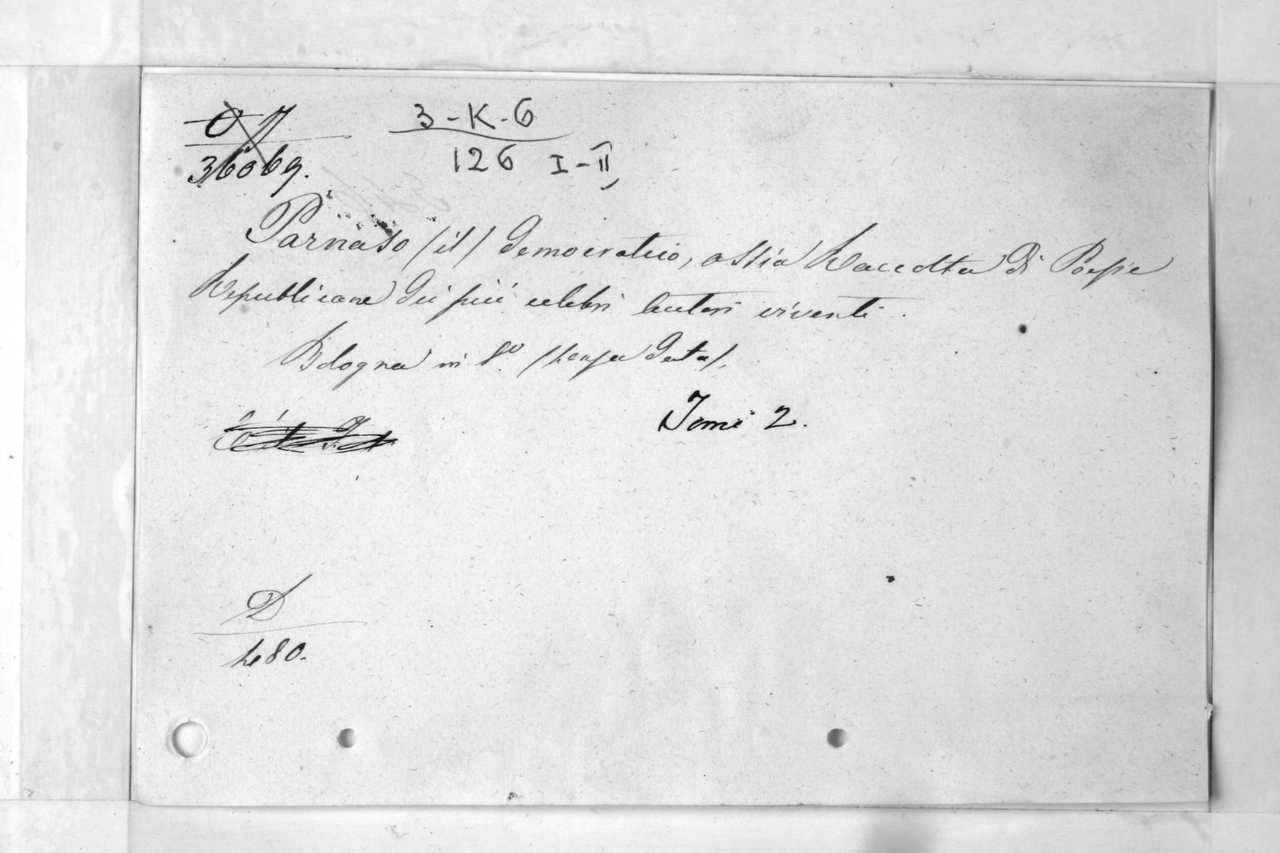 3-K-6
126 I-II,
36069.
Parnaso (il) Democratico, ossia Raccolta di Poesie
Republicane dei più celebri autori viventi.
Bologna in 8º. (senza data).
Tomi 2.
D
480.